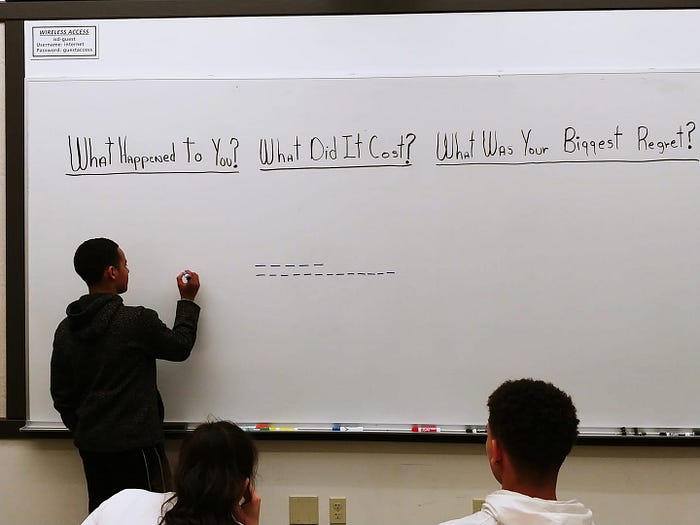 WIRELESS ACCESS
isd-guest
Username: internet
Password: guestaccess
What Happened to You? What Did It Cost? What Was Your Biggest Regret?